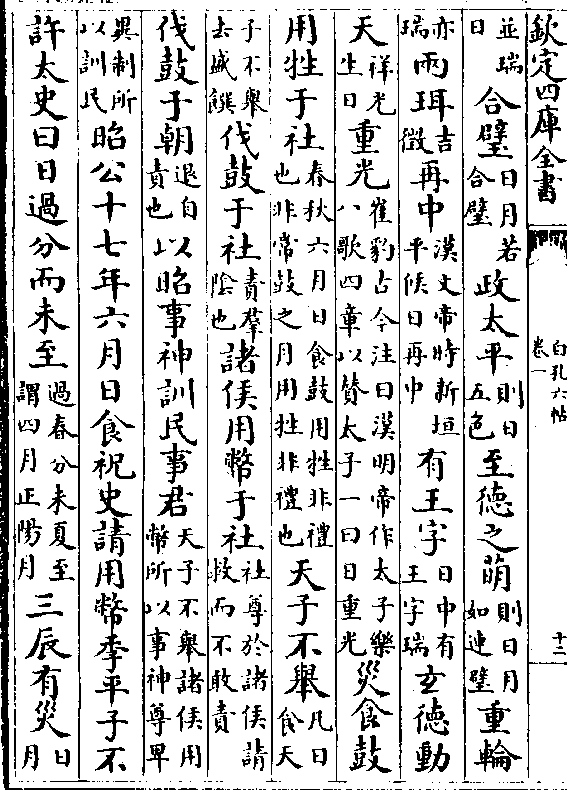 欽定四庫全書
白孔六帖
卷一
十二
並瑞日合璧日月若合璧政太平則日五色至德之萌則日月如連璧重輪
亦瑞兩珥吉徵再中漢文帝時新垣平候日再中有王字日中有王字瑞玄德動
天祥光生日重光崔豹古今注曰漢明帝作太子樂八歌四章以贊太子一曰日重光災食鼓
用牲于社春秋六月日食鼓用牲非禮也非常鼓之月用牲非禮也天子不舉凡日食天
子不舉去盛饌伐鼓于社責羣陰也諸侯用幣于社社尊於諸侯請救而不敢責
伐鼓于朝退自責也以昭事神訓民事君天子不舉諸侯用幣所以事神尊卑
異制所以訓民昭公十七年六月日食祝史請用幣季平子不
許太史曰日過分而未至過春分未夏至謂四月正陽月三辰有災日月